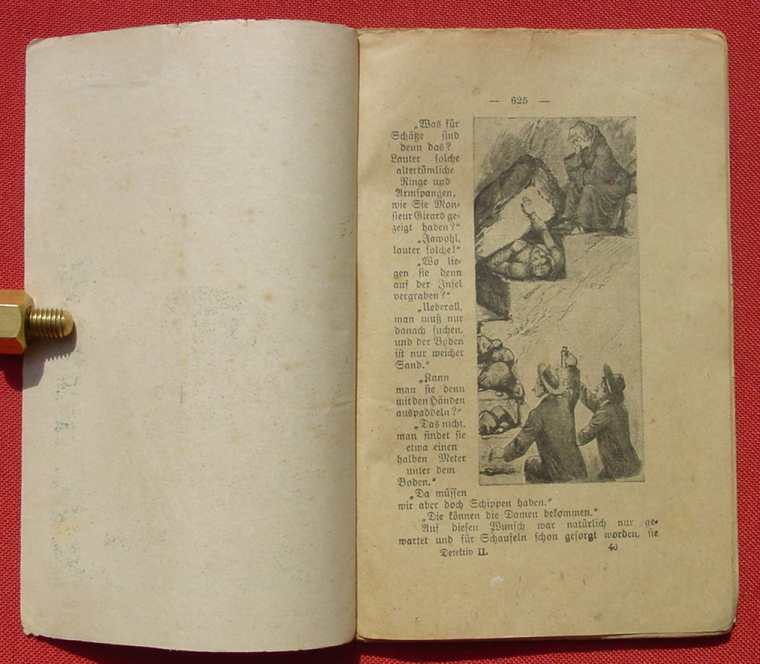 — 625 —
„Was für
Schätze sind
denn das?
Lauter solche
altertümliche
Ringe und
Armspangen,
wie Sie Mon-
sieur Girard ge-
zeigt haben?“
„Jawohl,
lauter solche!“
„Wo lie-
gen sie denn
auf der Insel
vergraben?“
„Ueberall,
man muß nur
danach suchen,
und der Boden
ist nur weicher
Sand.“
„Kann
man sie denn
mit den Händen
auspaddeln?“
„Das nicht,
man findet sie
etwa einen
halben Meter
unter dem
Boden.“
„Da müssen
wir aber doch Schippen haben.“
„Die können die Damen bekommen.“
Auf diesen Wunsch war natürlich nur ge-
wartet und für Schaufeln schon gesorgt worden, sie
Detektiv II. 40